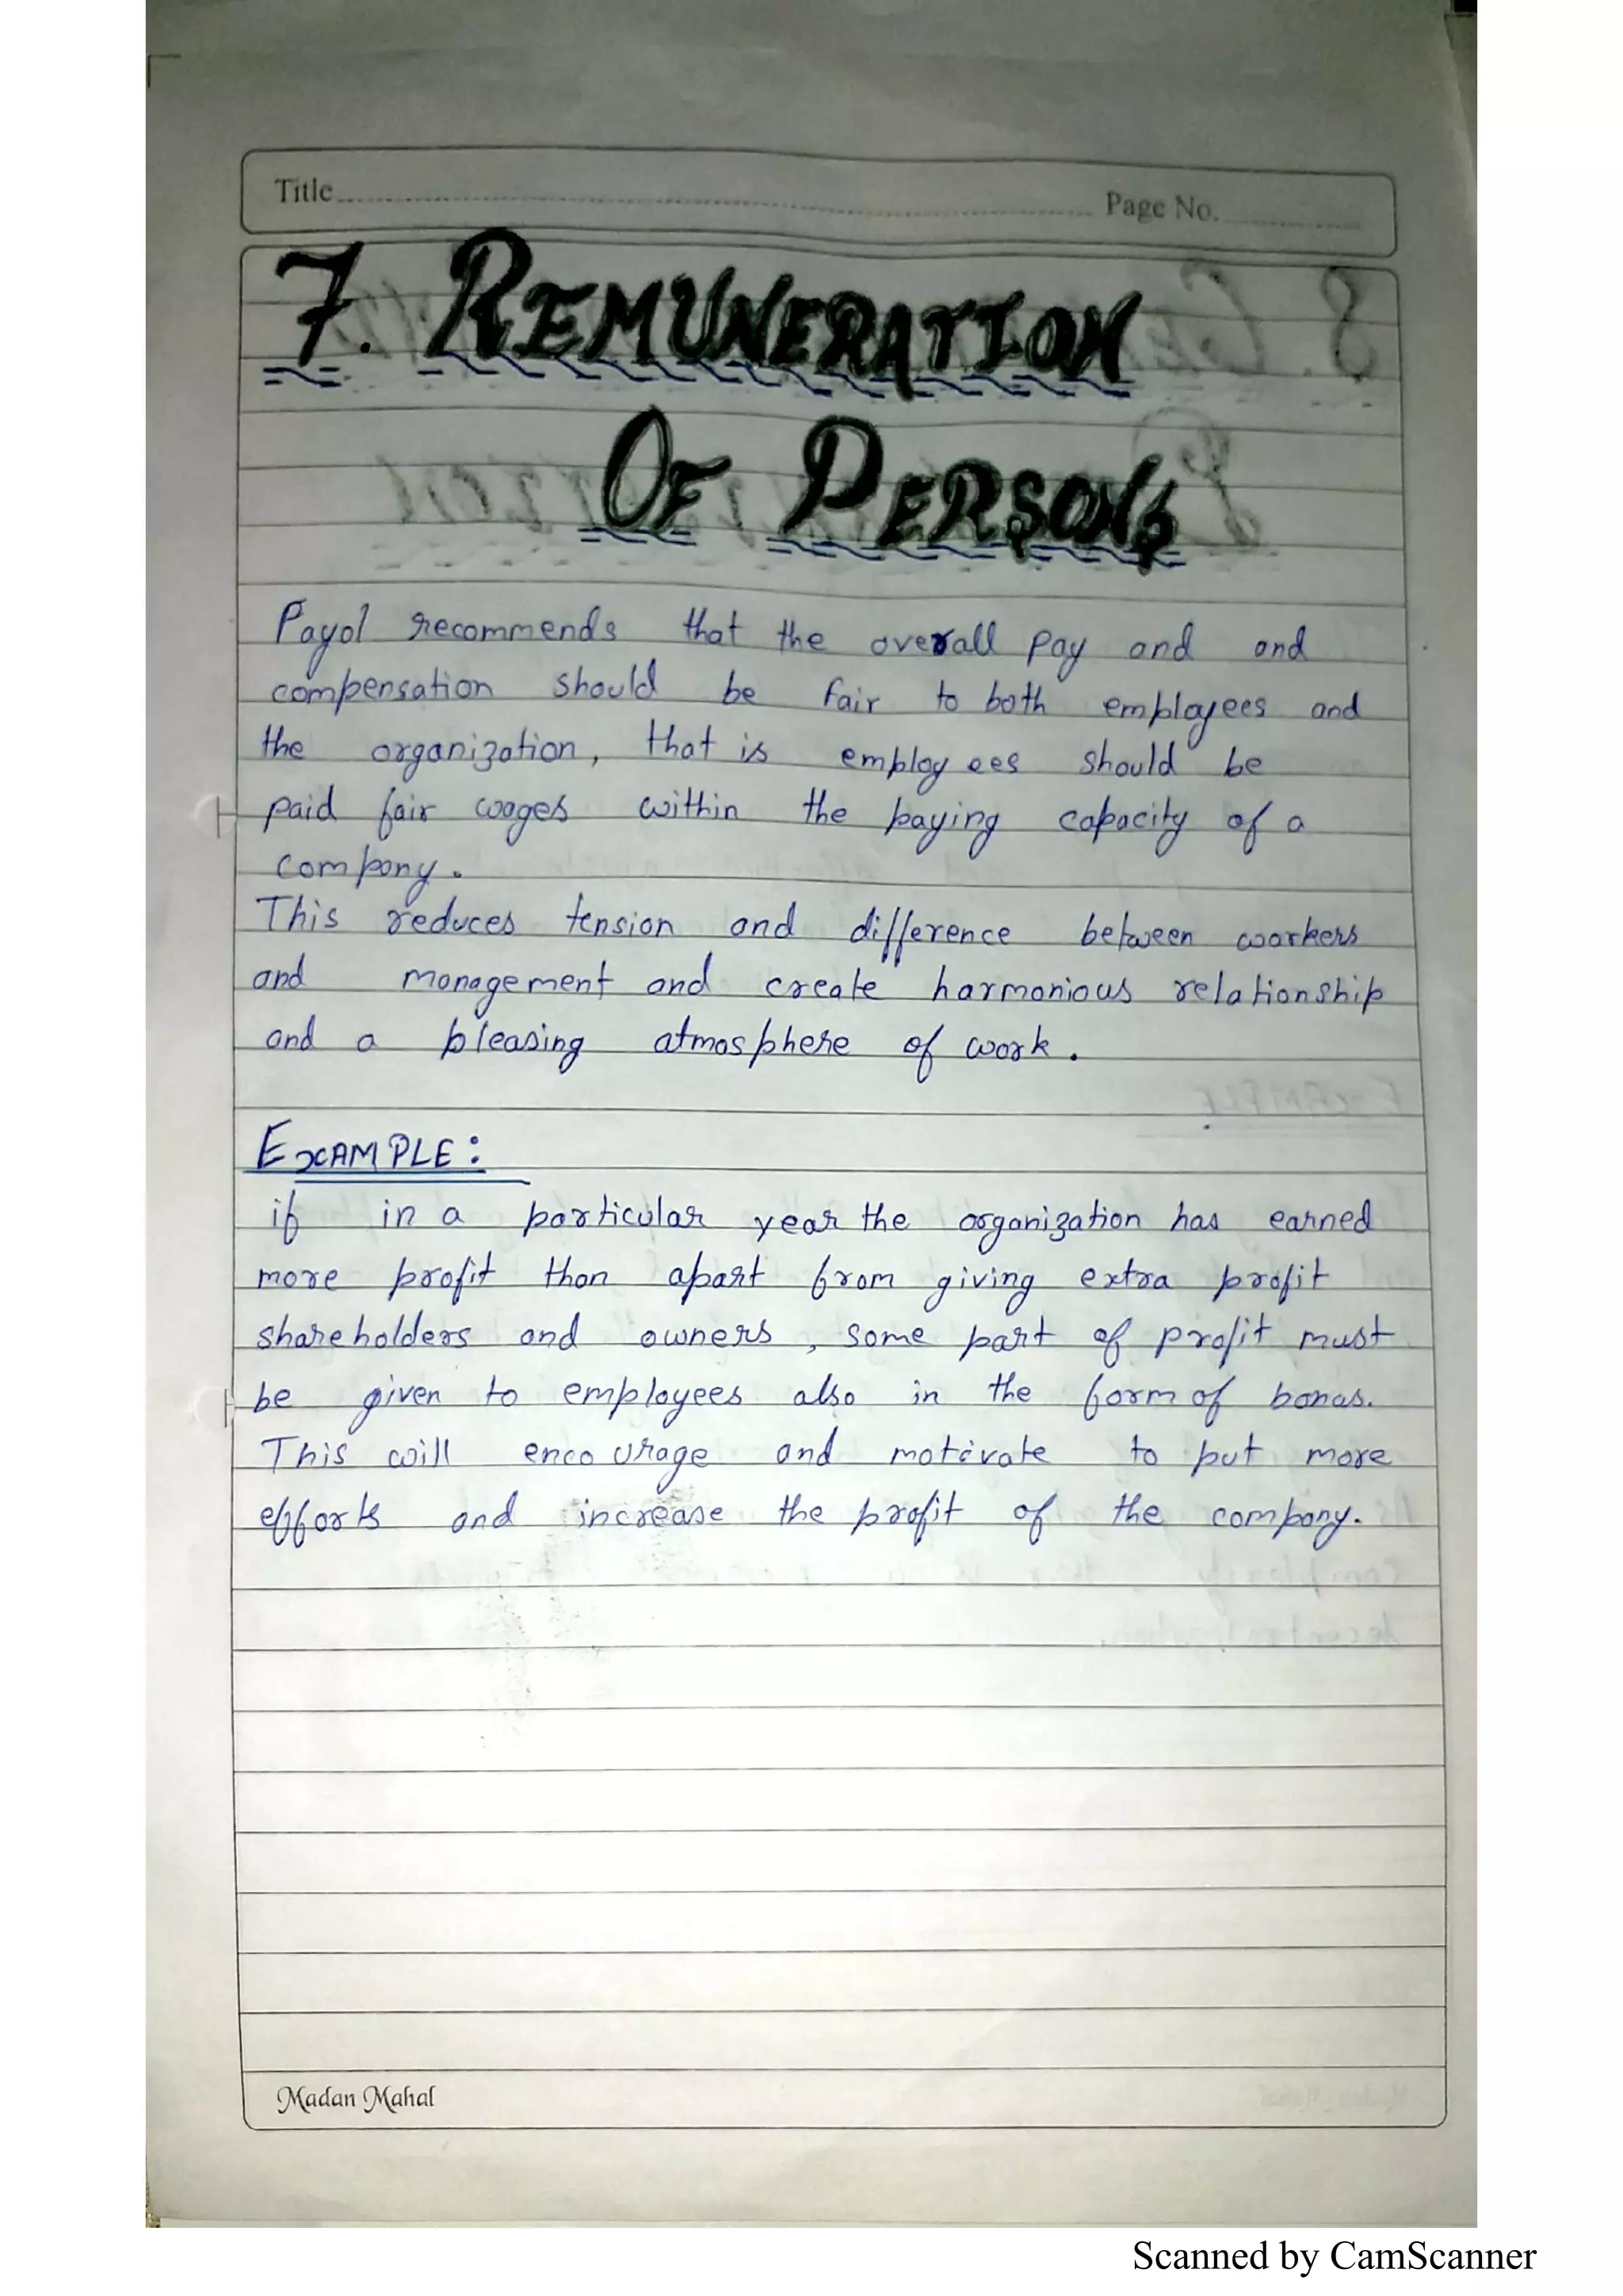 Title
Page No.
7. REMUNERATION
OF PERSONS
Payol recommends that the overall pay and and
compensation should be fair to both employees and
the organization, that is employees should be
paid fair wages within the paying capacity of a
company.
This reduces tension and difference between workers
and management and create harmonious relationship
and a pleasing atmosphere of work.
EXAMPLE:
if in a particular year the organization has earned
more profit than apart from giving extra profit
shareholders and owners, some part of profit must
be given to employees also in the form of bonas.
This will encourage and motivate to put more
efforts and increase the profit of the company.
Madan Mahal
Scanned by CamScanner